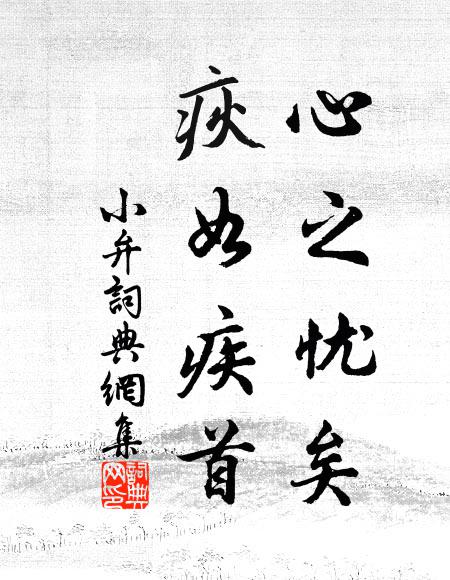 心之忧矣
疢如疾首
小弁詞典網集
詞典网印